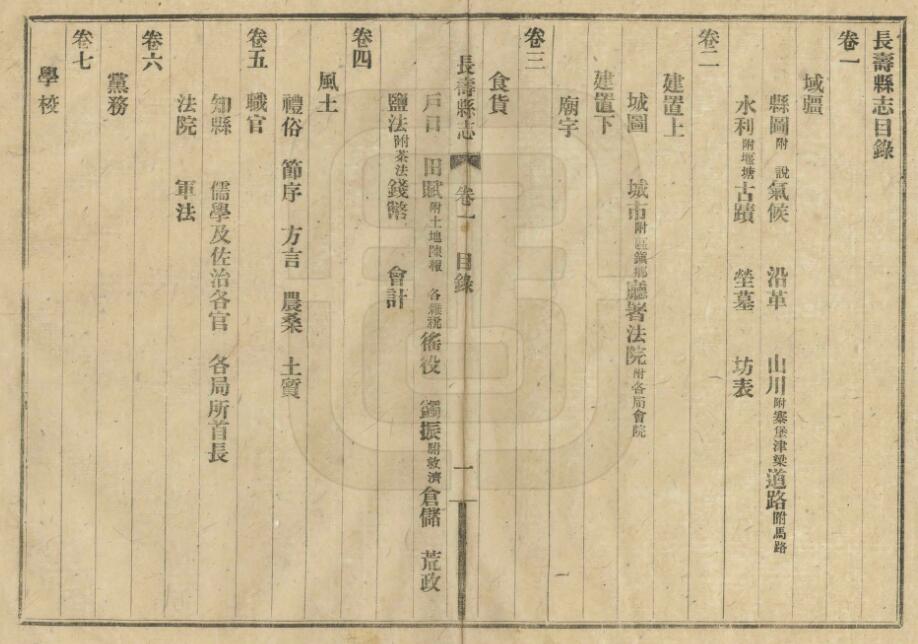 長壽縣志目錄
卷一
域疆
縣圖附說 氣候 沿革 山川附寨堡津梁 道路附馬路
水利附堰塘 古蹟 塋墓 坊表
卷二
建置上
城圖 城市附區鎮鄉 廳署法院附各局會院
建置下
廟宇
卷三
食貨
長壽縣志 卷一 目錄 一
戶口 田賦附土地陳報 各雜稅 徭役 蠲振附救濟 倉儲 荒政
鹽法附茶法 錢幣 會計
卷四
風土
禮俗 節序 方言 農桑 土質
卷五
職官
知縣 儒學及佐治各官 各局所首長
法院 軍法
卷六
黨務
卷七
學校